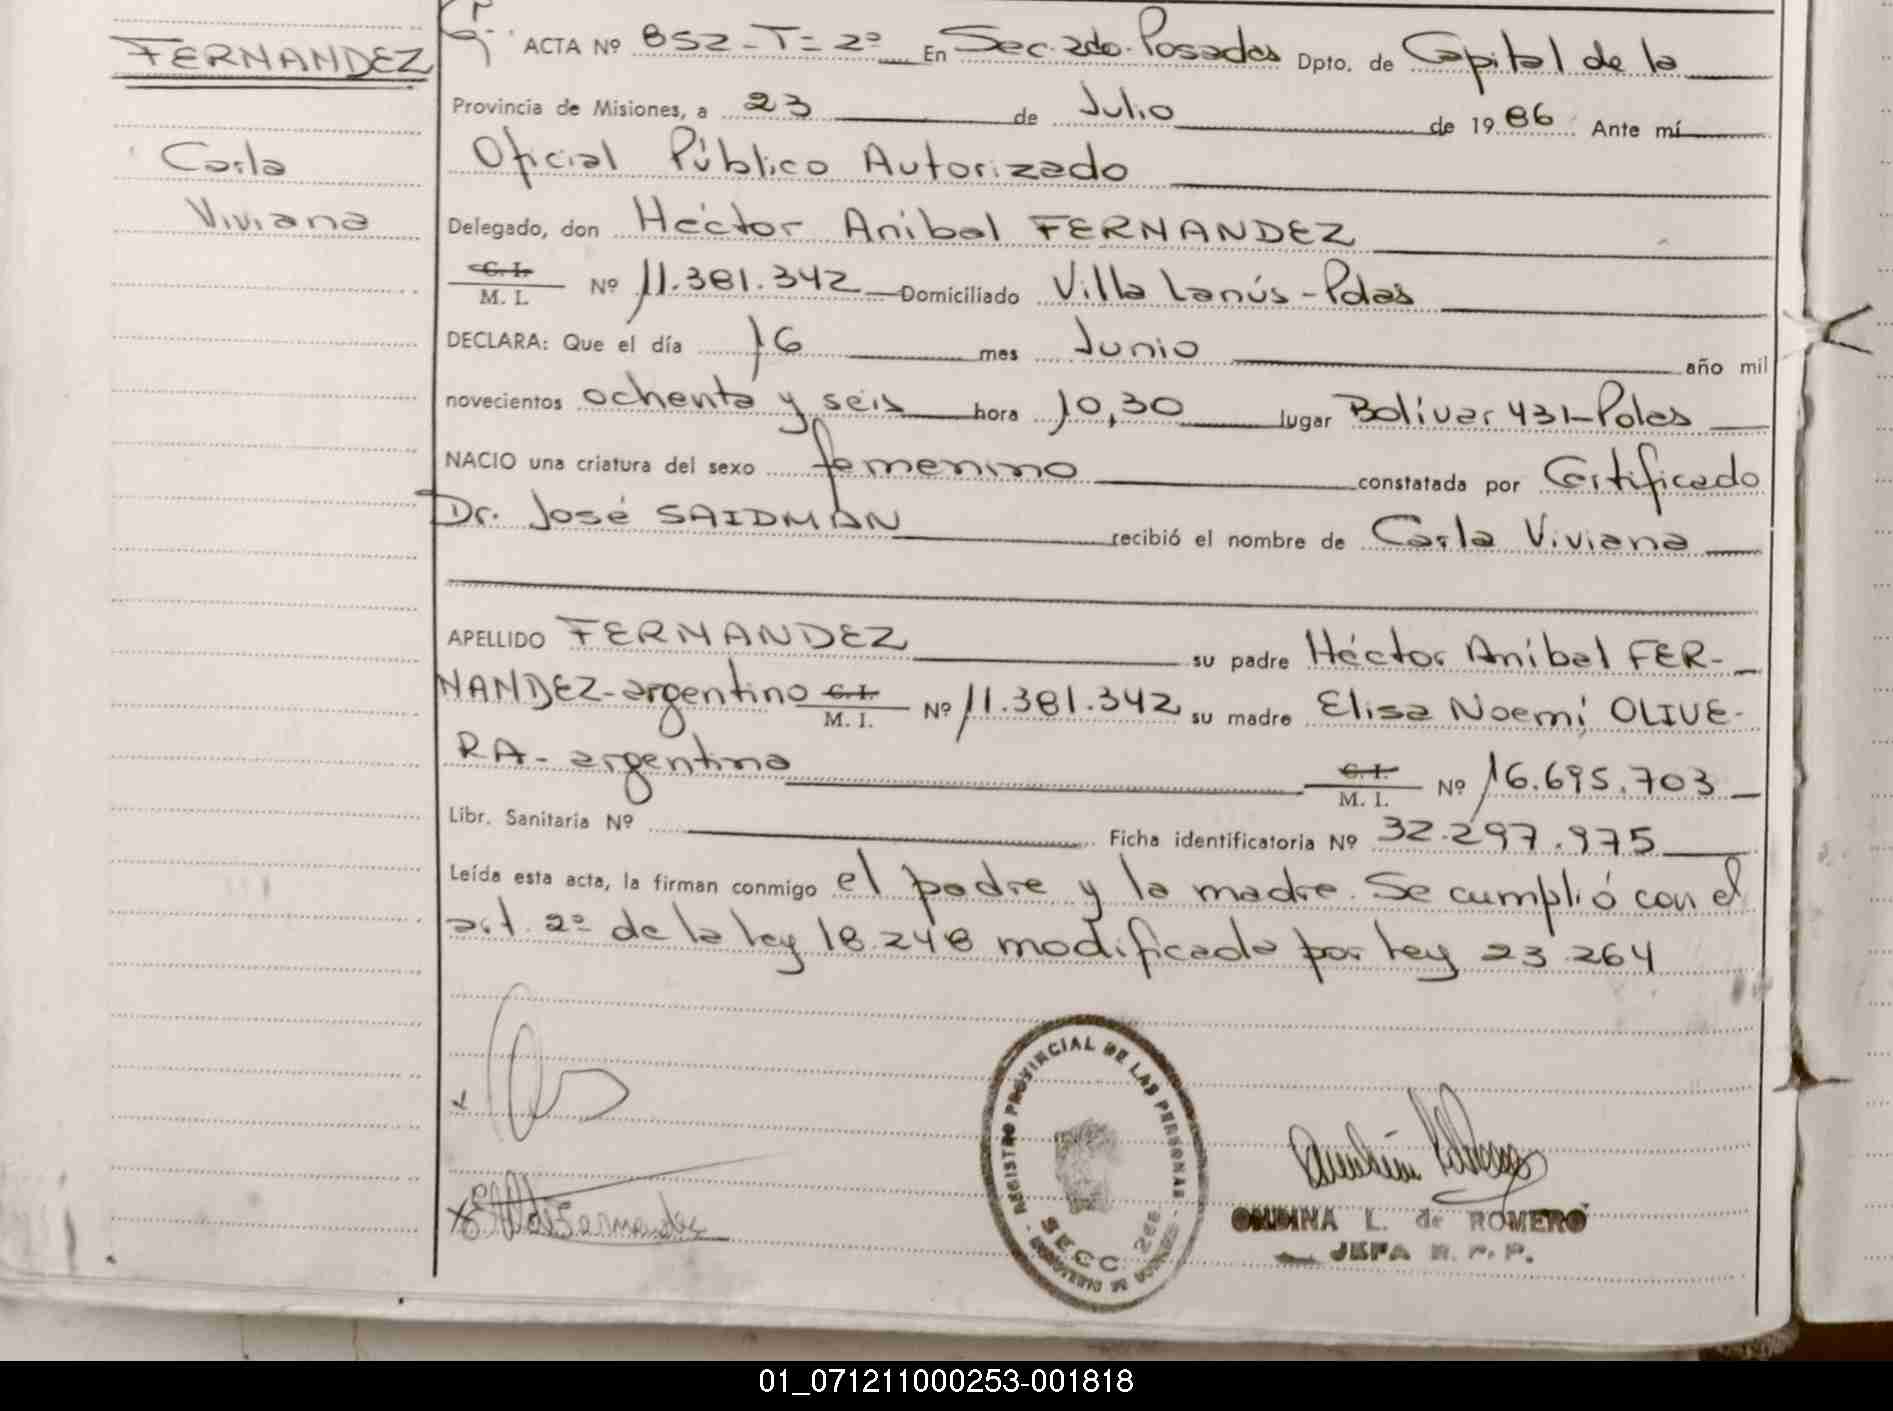 FERNANDEZ
Carla
Viviana
ACTA Nº 852-T=2º En Sec. 2do. Posadas Dpto. de Capital de la
Provincia de Misiones, a 23 de Julio de 1986 Ante mí
Oficial Público Autorizado
Delegado, don Héctor Aníbal FERNANDEZ
C. I. M. I. Nº 11.381.342 Domiciliado Villa Lanús-Pdas
DECLARA: Que el día 16 mes Junio año mil
novecientos ochenta y seis hora 10,30 lugar Bolívar 431-Pdas
NACIO una criatura del sexo femenino constatada por Certificado
Dr. José SAIDMAN recibió el nombre de Carla Viviana
APELLIDO FERNANDEZ su padre Héctor Aníbal FER-
NANDEZ-argentino C. I. M. I. Nº 11.381.342 su madre Elisa Noemí OLIVE-
RA- argentina C. I. M. I. Nº 16.695.703
Libr. Sanitaria Nº Ficha identificatoria Nº 32.297.975
Leída esta acta, la firman conmigo el padre y la madre. Se cumplió con el
art. 2º de la ley 18.248 modificada por ley 23.264
REGISTRO PROVINCIAL DE LAS PERSONAS
SECC. 2da
ONDINA L. de ROMERO
JEFA R. P. P.
01_071211000253-001818